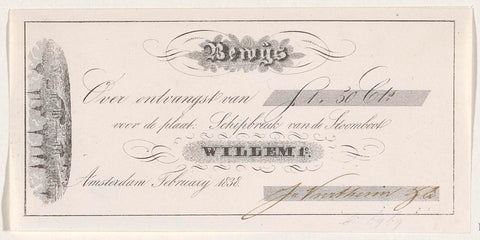 Bewijs
Over ontvangst van f 1. 50 Cts.
voor de plaat: Schipbreuk van de Stoomboot
WILLEM 1e.
Amsterdam February 1838.